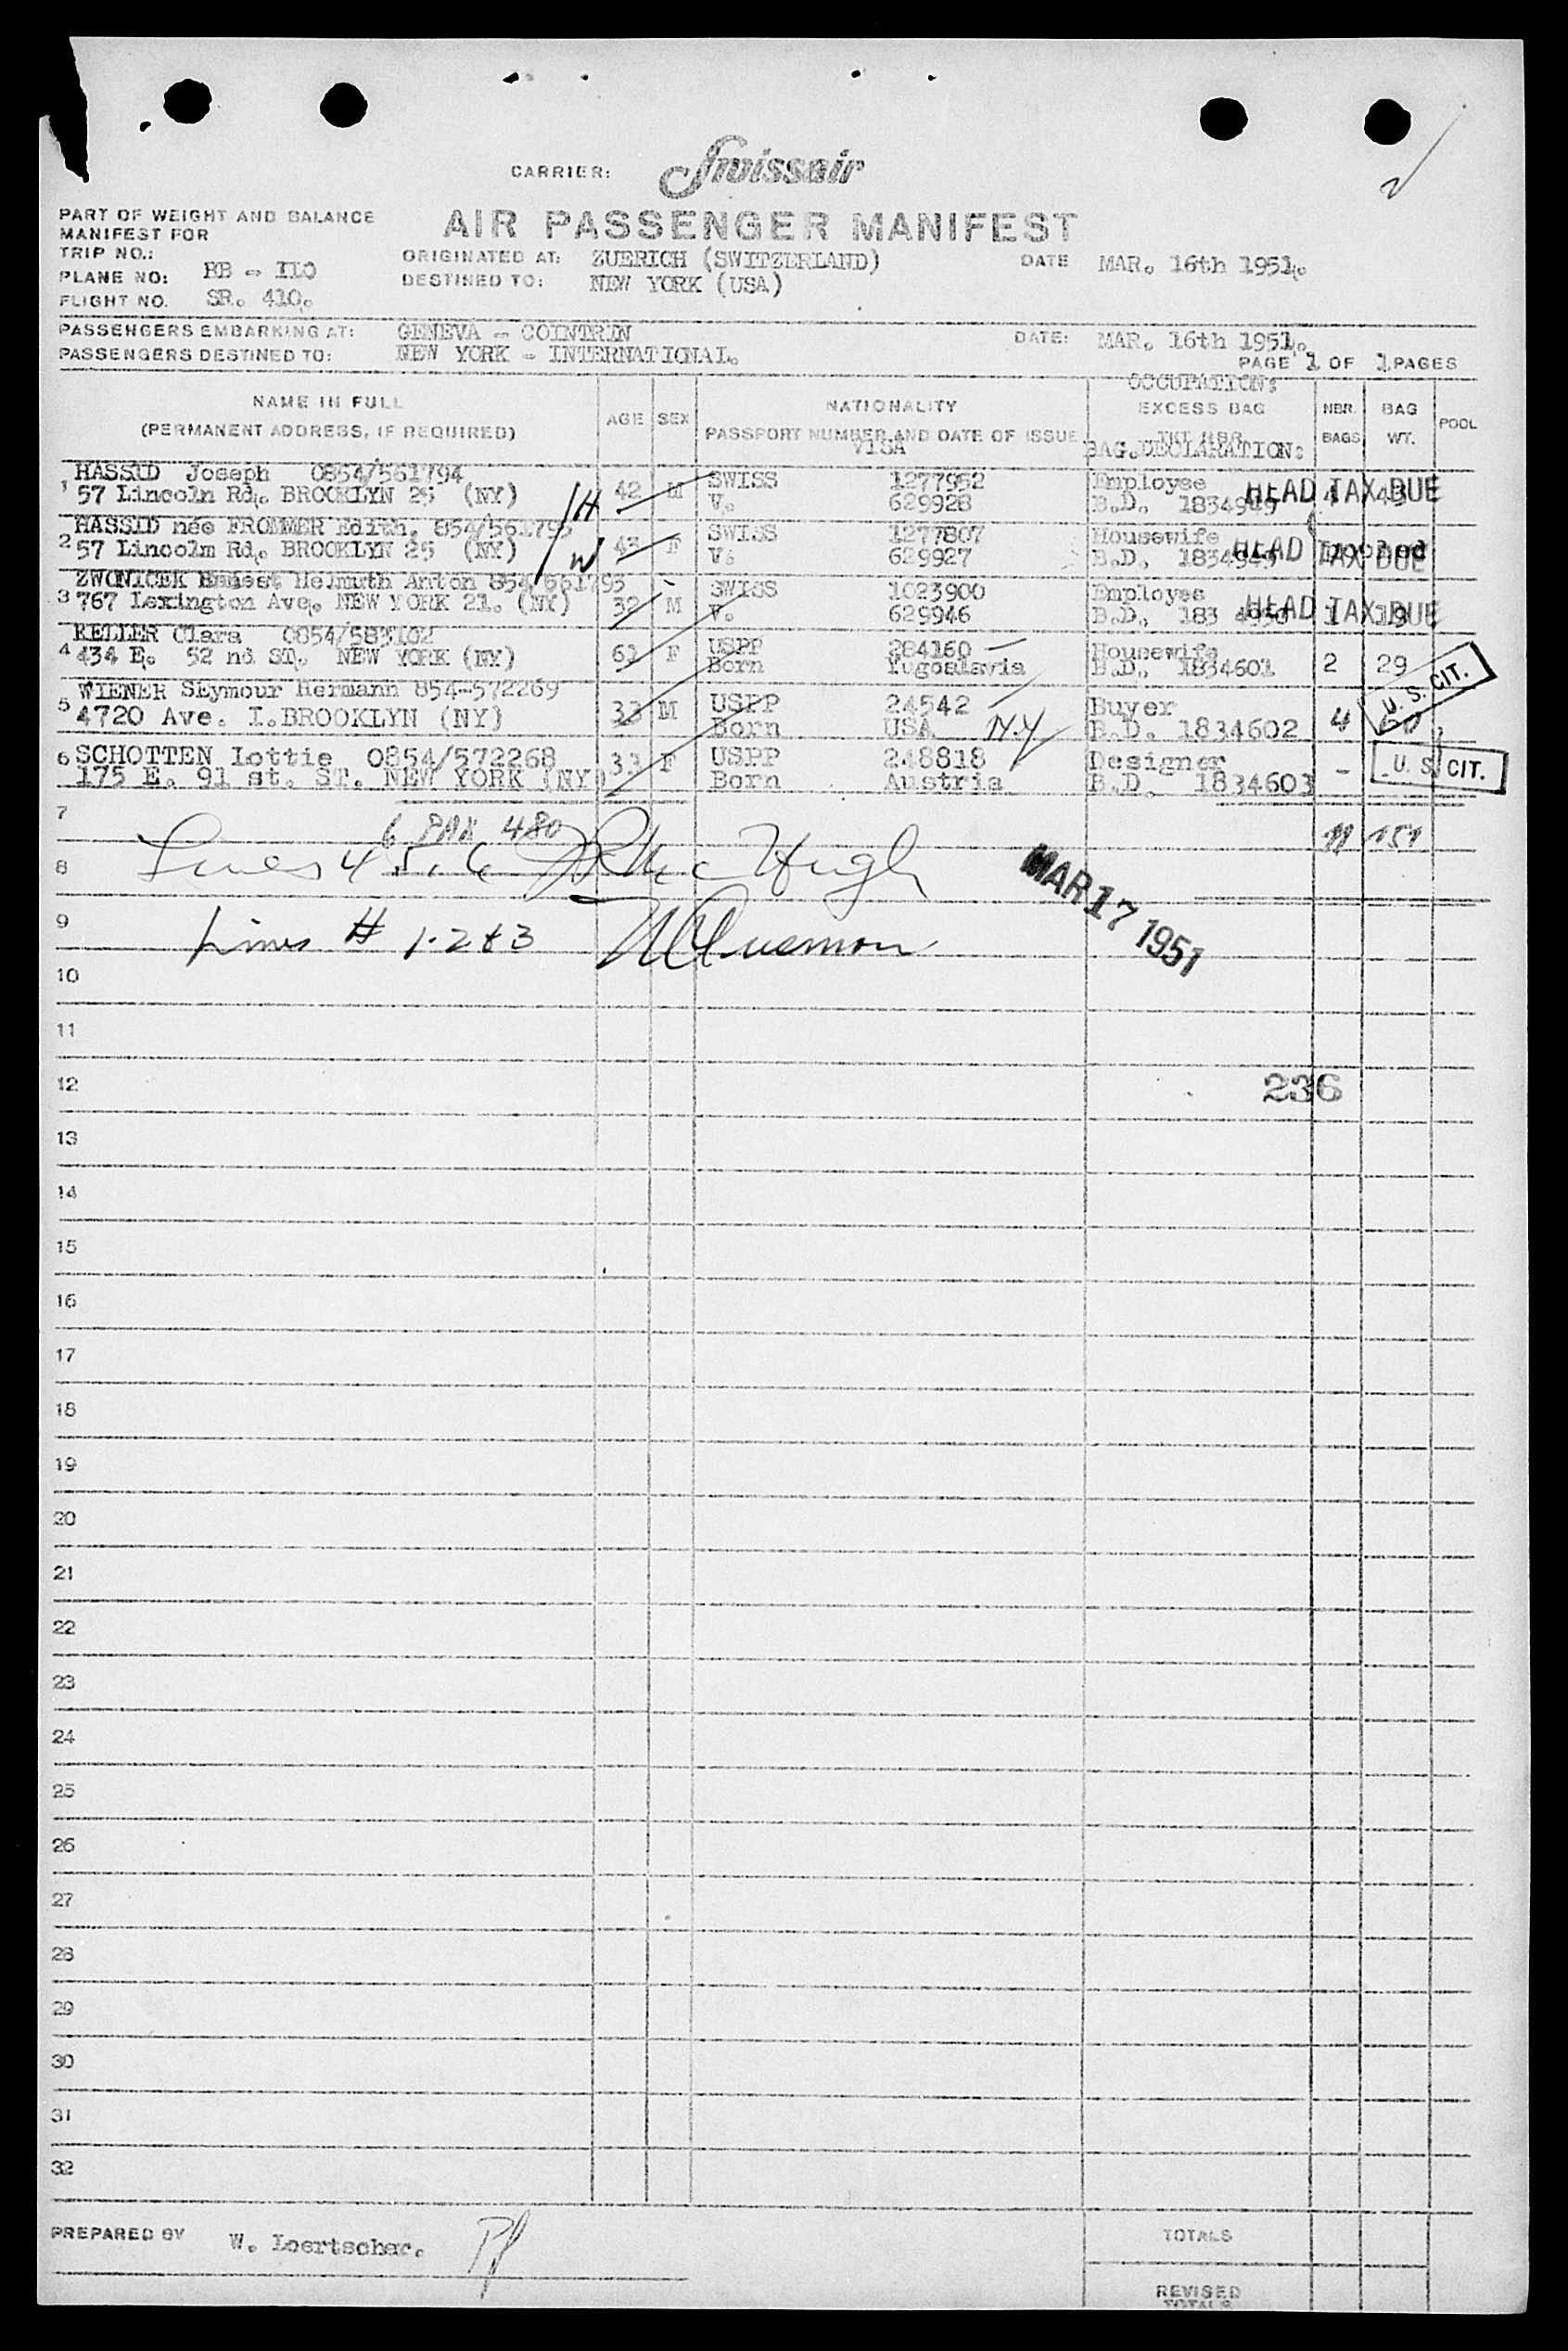 CARRIER: Swissair
AIR PASSENGER MANIFEST
PART OF WEIGHT AND BALANCE
MANIFEST FOR
TRIP NO.:
PLANE NO: HB - I10
FLIGHT NO. SR. 410.
ORIGINATED AT: ZUERICH (SWITZERLAND) DATE MAR. 16th 1951.
DESTINED TO: NEW YORK (USA)
PASSENGERS EMBARKING AT: GENEVA - COINTRIN DATE: MAR. 16th 1951.
PASSENGERS DESTINED TO: NEW YORK - INTERNATIONAL.
PAGE 1 OF 1 PAGES
NAME IN FULL
(PERMANENT ADDRESS, IF REQUIRED)
AGE SEX
NATIONALITY
PASSPORT NUMBER AND DATE OF ISSUE
VISA
OCCUPATION:
EXCESS BAG
TKT NBR
BAG.DECLARATION:
NBR. BAGS
BAG WT.
POOL
1 HASSID Joseph 0854/561794 42 M SWISS 1277952 Employee HEAD TAX DUE
57 Lincoln Rd. BROOKLYN 25 (NY) H V. 629928 B.D. 4 43
2 HASSID née FROMMER Edith. 43 F SWISS 1277807 Housewife HEAD TAX DUE
57 Lincolm Rd. BROOKLYN 25 (NY) W V. 629927 B.D. Pooled
3 ZWONICEK Helmuth Anton 32 M SWISS 1023900 Employee HEAD TAX DUE
767 Lexington Ave. NEW YORK 21. (NY) V. 629946 B.D. 1 19
4 KELLER Clara 0854/583102 61 F USPP 284160 Housewife
434 E. 52 nd ST. NEW YORK (NY) Born Yugoslavia B.D. 1834601 2 29
U. S. CIT.
5 WIENER Seymour Hermann 854-572269 33 M USPP 24542 Buyer
4720 Ave. I.BROOKLYN (NY) Born USA N.Y B.D. 1834602 4 60
6 SCHOTTEN Lottie 0854/572268 33 F USPP 248818 Designer
175 E. 91 st. ST. NEW YORK (NY) Born Austria B.D. 1834603 -
U. S. CIT.
7 6 PAX 480 11 151
8 Lines 4 5. 6 Mc Hugh
MAR 17 1951
9 Lines # 1.2 & 3
10
11
12 236
13
14
15
16
17
18
19
20
21
22
23
24
25
26
27
28
29
30
31
32
PREPARED BY W. Loertscher.
TOTALS
REVISED
TOTALS